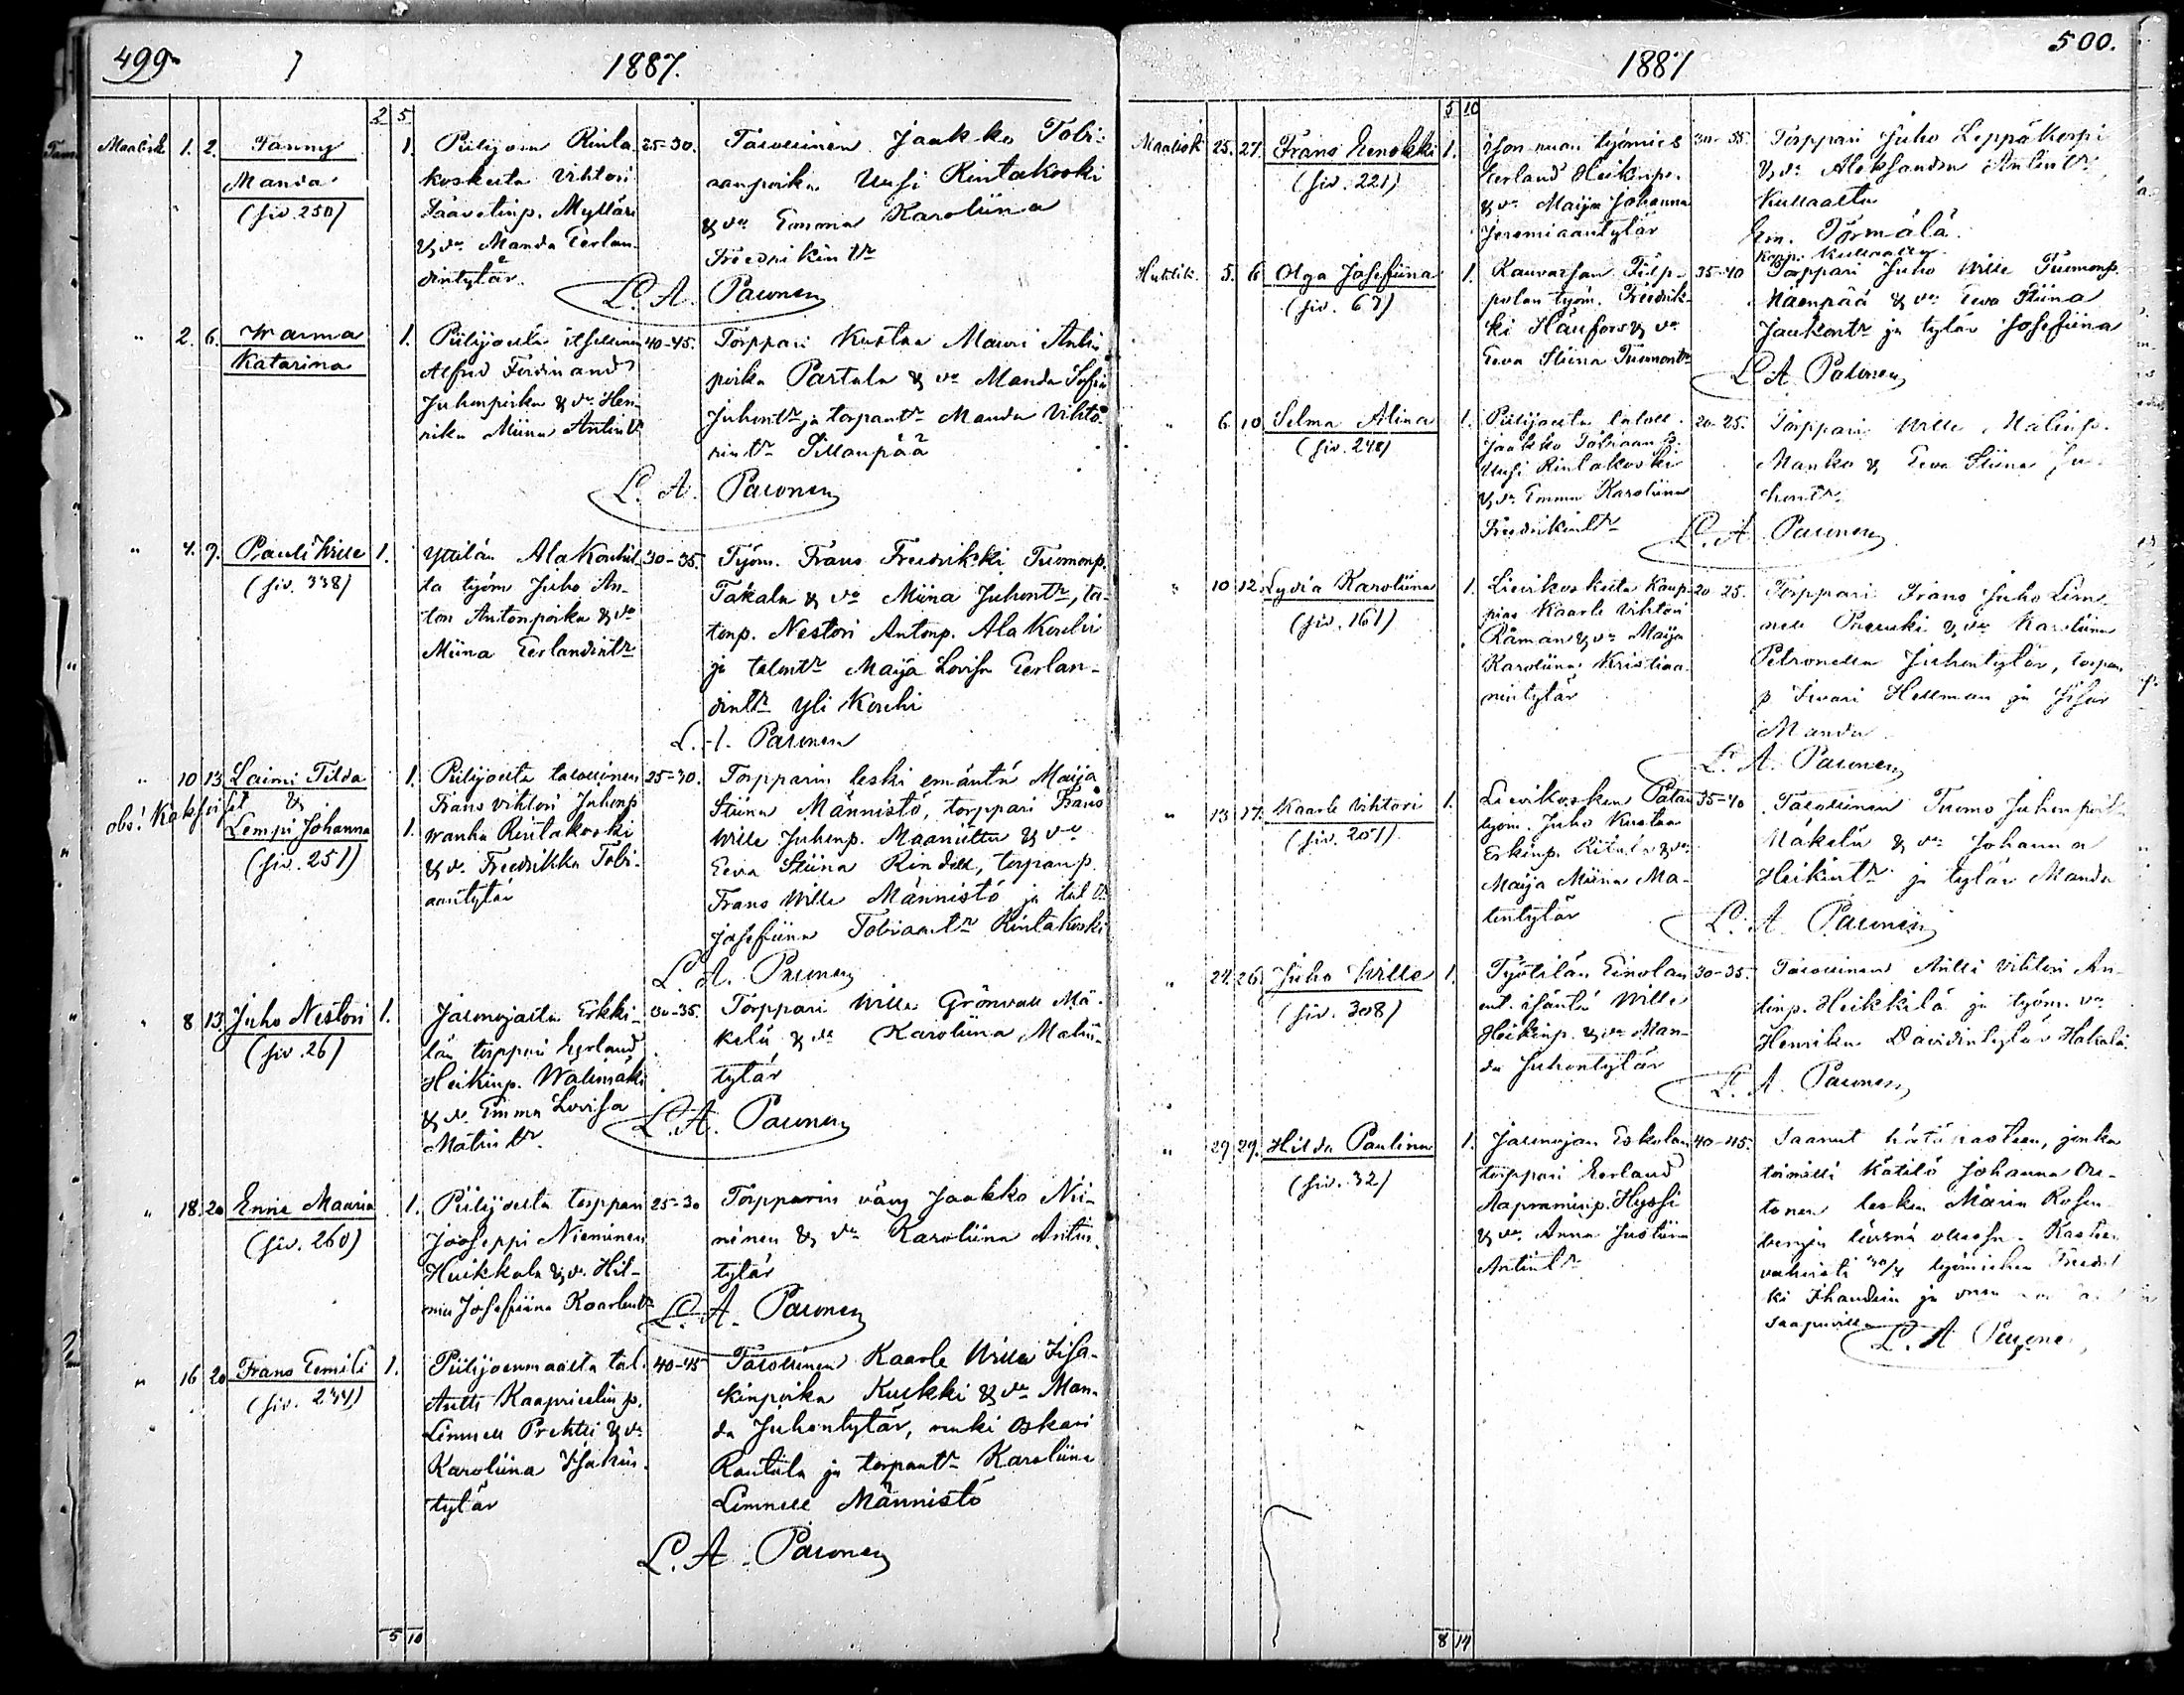 499
1887.
2 5
Maalisk 1. 2. Fanny
Manda
(siv. 250)
1. Piilijoen Rinta-
koskelta Vihtori
Taavetinp. Mylläri
& vo Manda Eerlan-
dintytär
25-30.
Talollinen Jaakko Tobi-
aanpoika Uusi Rintakoski
& vo Emma Karoliina
Fredrikintr
L. A. Paconen
" 2. 6. Warma
Katarina
1. Piilijoelta itsellinen
Alfred Ferdinand
Juhonpoika & vo Hen-
rika Miina Antintr
40-45.
Torppari Kustaa Mauri Antin
poika Partala & vo Manda Sofia
Juhontr ja torpantr Manda Vihto-
rintr Sillanpää
L. A. Paconen
" 4. 9. Pauli Wille
(siv. 338)
1. Yttilän Ala Kouhil-
ta työm Juho An-
ton Antonpoika & vo
Miina Eerlandintr
30-35.
Työm. Frans Fredrikki Tuomonp.
Takala & vo Miina Juhontr, ta-
lonp. Nestori Antonp. Ala Kouhi
ja talontr Maija Lovisa Eerlan-
dintr Yli Kouhi
L. A. Paconen
" 10 13 Laimi Tilda
obs! Kaksoiset &
Lempi Johanna
(siv. 251)
1. 1.
Piilijoelta talollinen
Frans Vihtori Juhonp
Wanha Rintakoski
& vo Fredrikka Tobi-
aantytär
25-30.
Torpparin leski emäntä Maija
Stiina Männistö, torppari Frans
Wille Juhonp. Maaniittu & vo
Eeva Stiina Rindell, torpanp.
Frans Wille Männistö ja tal tr
Josefiina Tobiaantr Rintakoski
L. A. Paconen
" 8 13. Juho Nestori
(siv. 26)
1. Jaunojalta Erkki-
län torppari Eerland
Heikinp. Walimäki
& vo Emma Lovisa
Matintr
30-35.
Torppari Wille Grönvall Mä-
kelä & vo Karoliina Matin-
tytär
L. A. Paconen
" 18. 20 Enni Maaria
(siv. 260)
1. Piilijoelta torppari
Jooseppi Nieminen
Huikkala & vo Hil-
ma Josefiina Kaarlentr
25-30
Torpparin vävy Jaakko Nie-
minen & vo Karoliina Antin
tytär
L. A. Paconen
" 16 20 Frans Eemili
(siv. 234)
1. Piilijoenmaalta tal.
Antti Kaaprielin p.
Limnell Prehtu & vo
Karoliina Isakin-
tytär
40-45
Talollinen Kaarle Wille Iisa-
kinpoika Kukki & vo Man-
da Juhontytär, renki Oskari
Rantala ja torpantr Karoliina
Limnell Männistö
L. A. Paconen
5 10
500.
1887
5 10
Maalisk 25. 27. Frans Eenokki
(siv. 221)
1. Ison maan työmies
Eerland Heikinp.
& vo Maija Johanna
Jeremiaantytär
30-35.
Torppari Juho Leppäkorpi
& vo Aleksandra Antintr
Kullaalta
Em. Törmälä.
Kapp. Kullaalla
Huhtik. 5. 6 Olga Josefiina
(siv. 67)
1. Kauvatsan Piip-
polan työm. Fredrik-
ki Hänfors & vo
Eeva Stiina Tuomontr
35-40
Torppari Juho Wille Tuomonp.
Haenpää & vo Eeva Stiina
Jaakontr ja tytär Josefiina
L. A. Paconen
" 6 10 Selma Alina
(siv. 248)
1. Piilijoelta taloll.
Jaakko Tobiaan p.
Uusi Rintakoski
& vo Emma Karoliina
Fredrikintr
20-25.
Torppari Wille Matinp.
Manka & Eeva Stiina Ju-
hontr
L. A. Paconen
" 10 12. Lydia Karoliina
(siv. 161)
1. Lievikoskelta kaup-
pias Kaarle Vihtori
Råman & vo Maija
Karoliina Kristiaa-
nintytär
20-25.
Torppari Frans Juho Lim-
nell & vo Karoliina
Petronella Juhontytär, torpan
p Iivari Hellman ja sisar
Manda
L. A. Paconen
" 13 17. Kaarle Vihtori
(siv. 201)
1. Lievikosken
työm. Juho Kustaa
Erkinp. & vo
Maija Miina Ma-
tintytär
35-40
Talollinen Tuomo Juhonpoika
Mäkelä & vo Johanna
Heikintr ja tytär Manda
L. A. Paconen
" 24. 26. Juho Wille
(siv. 308)
1. Työtilän Einolan
ent. isäntä Wille
Heikinp. & vo Man-
da Juhontytär
30-35.
Talollinen Antti Vihtori An-
tinp. Heikkilä ja työm. vo
Henrika Davidintytär Hakala.
L. A. Paconen
" 29 29. Hilda Paulina
(siv. 32)
1. Jaunojan Eskolan
torppari Eerland
Aapraminp. Hyssi
& vo Anna Justiina
Antintr
40-45.
Saanut hätäkasteen, jonka
toimitti kätilö Johanna
lesken Maria Rosen-
bergin läsnä ollessa. Kasteen
vahvisti 30/4 työmiehen Fredrik
ki ja
saapuvilla
L. A. Paconen
8 14